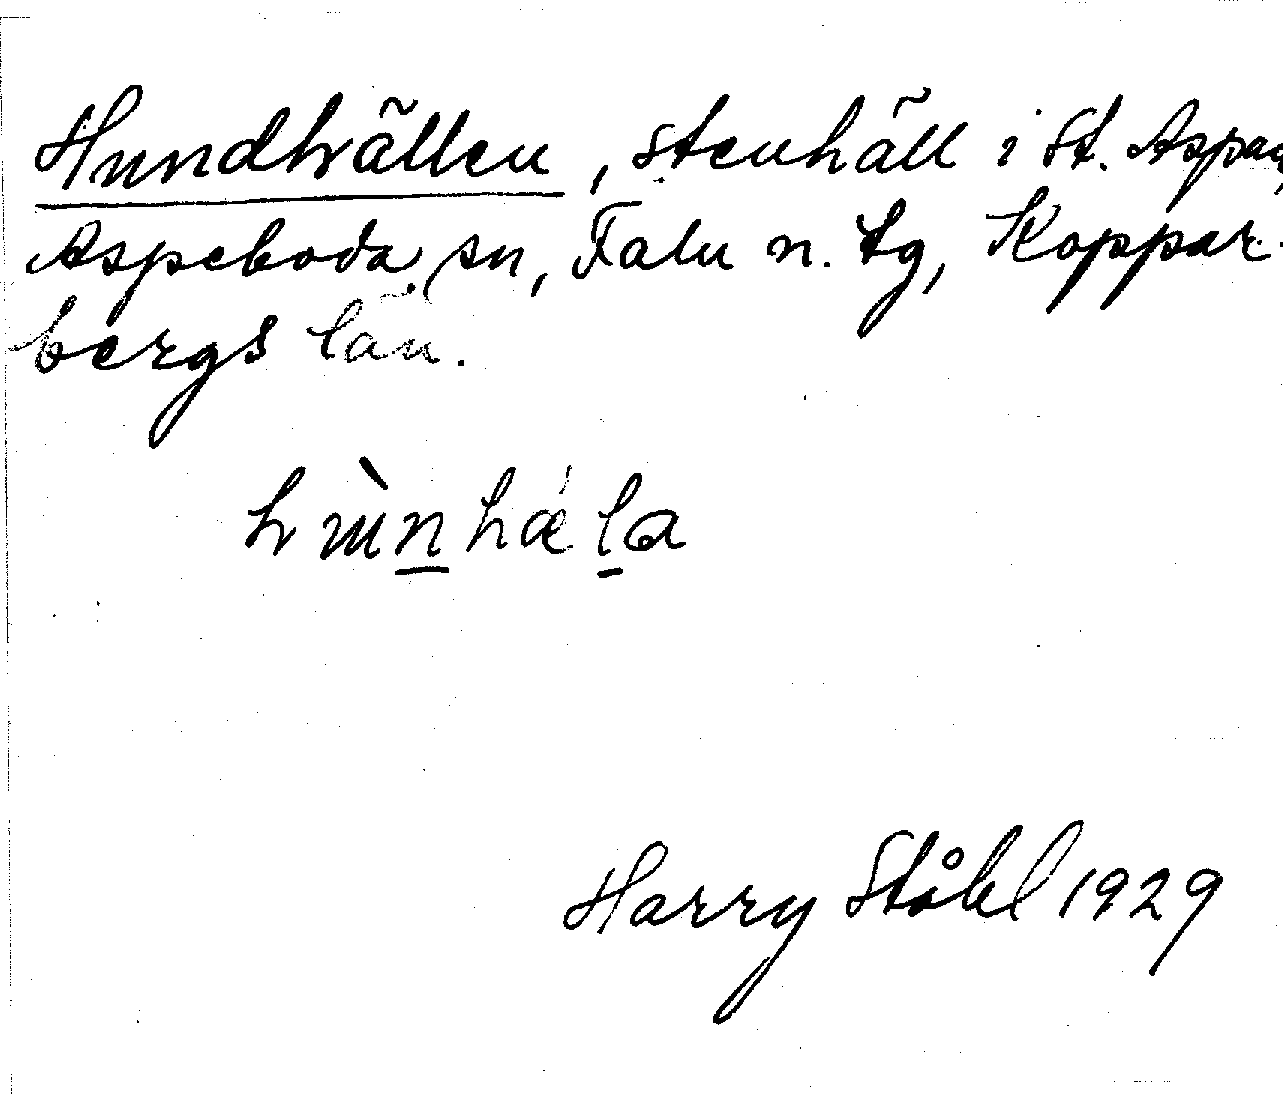 Hundhällen, stenhäll i St. Aspan,
Aspeboda sn, Falu n. tg, Koppar-
bergs län.
hɯ̀n̲hǽl̲a
Harry Ståhl 1929